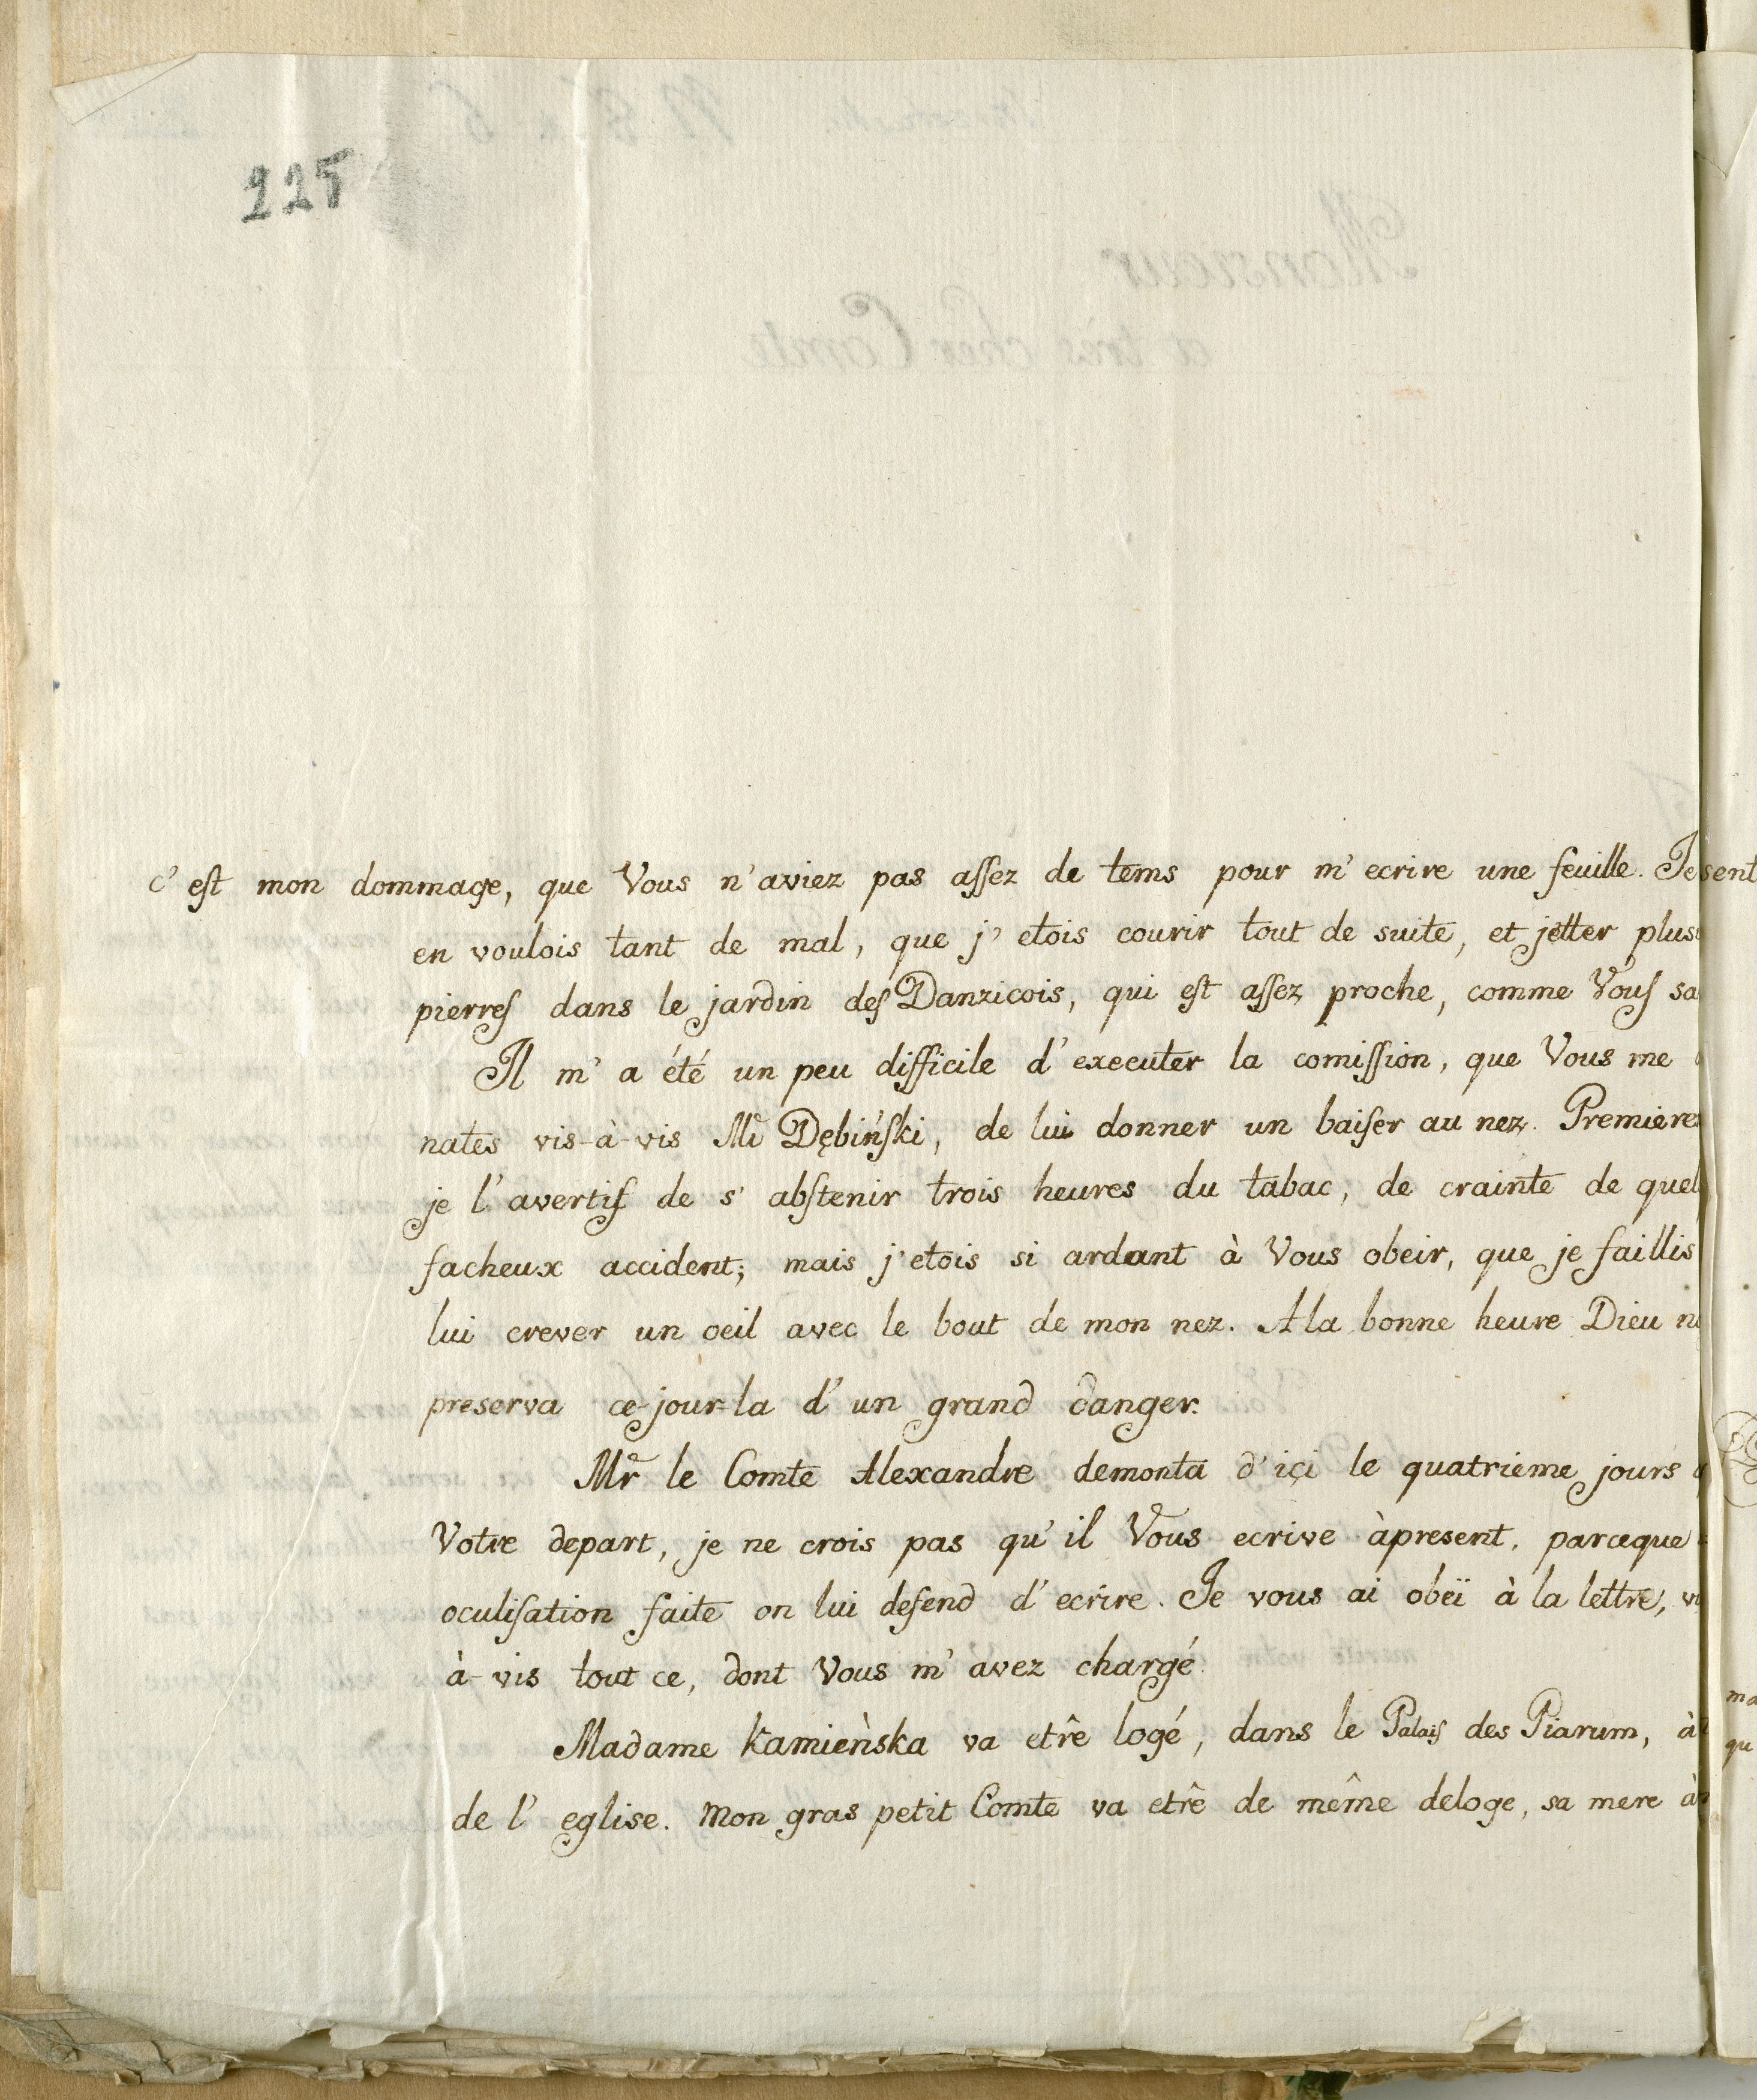 225
c'est mon dommage, que Vous n'aviez pas assez de tems pour m'ecrire une feuille. Je sent
en voulois tant de mal, que j'etois courir tout de suite, et jetter plus
pierres dans le jardin des Danzicois, qui est assez proche, comme Vous sa
Il m'a été un peu difficile d'executer la comission, que Vous me
nates vis-à-vis Mr Dębiński, de lui donner un baiser au nez. Premiere
je l'avertis de s'abstenir trois heures du tabac, de crainte de quel
facheux accident; mais j'etois si ardant à Vous obeir, que je faillis
lui crever un oeil avec le bout de mon nez. A la bonne heure Dieu n
preserva ce-jour-la d'un grand danger.
Mr le Comte Alexandre demonta d'içi le quatrieme jours
Votre depart, je ne crois pas qu'il Vous ecrive àpresent, parceque
oculisation faite on lui defend d'ecrire. Je vous ai obeï à la lettre, vi
à-vis tout ce, dont Vous m'avez chargé.
Madame Kamieǹska va etrê logé, dans le Palais des Piarum, à
de l'eglise. Mon gras petit Comte va etrê de même deloge, sa mere à
ma
qu